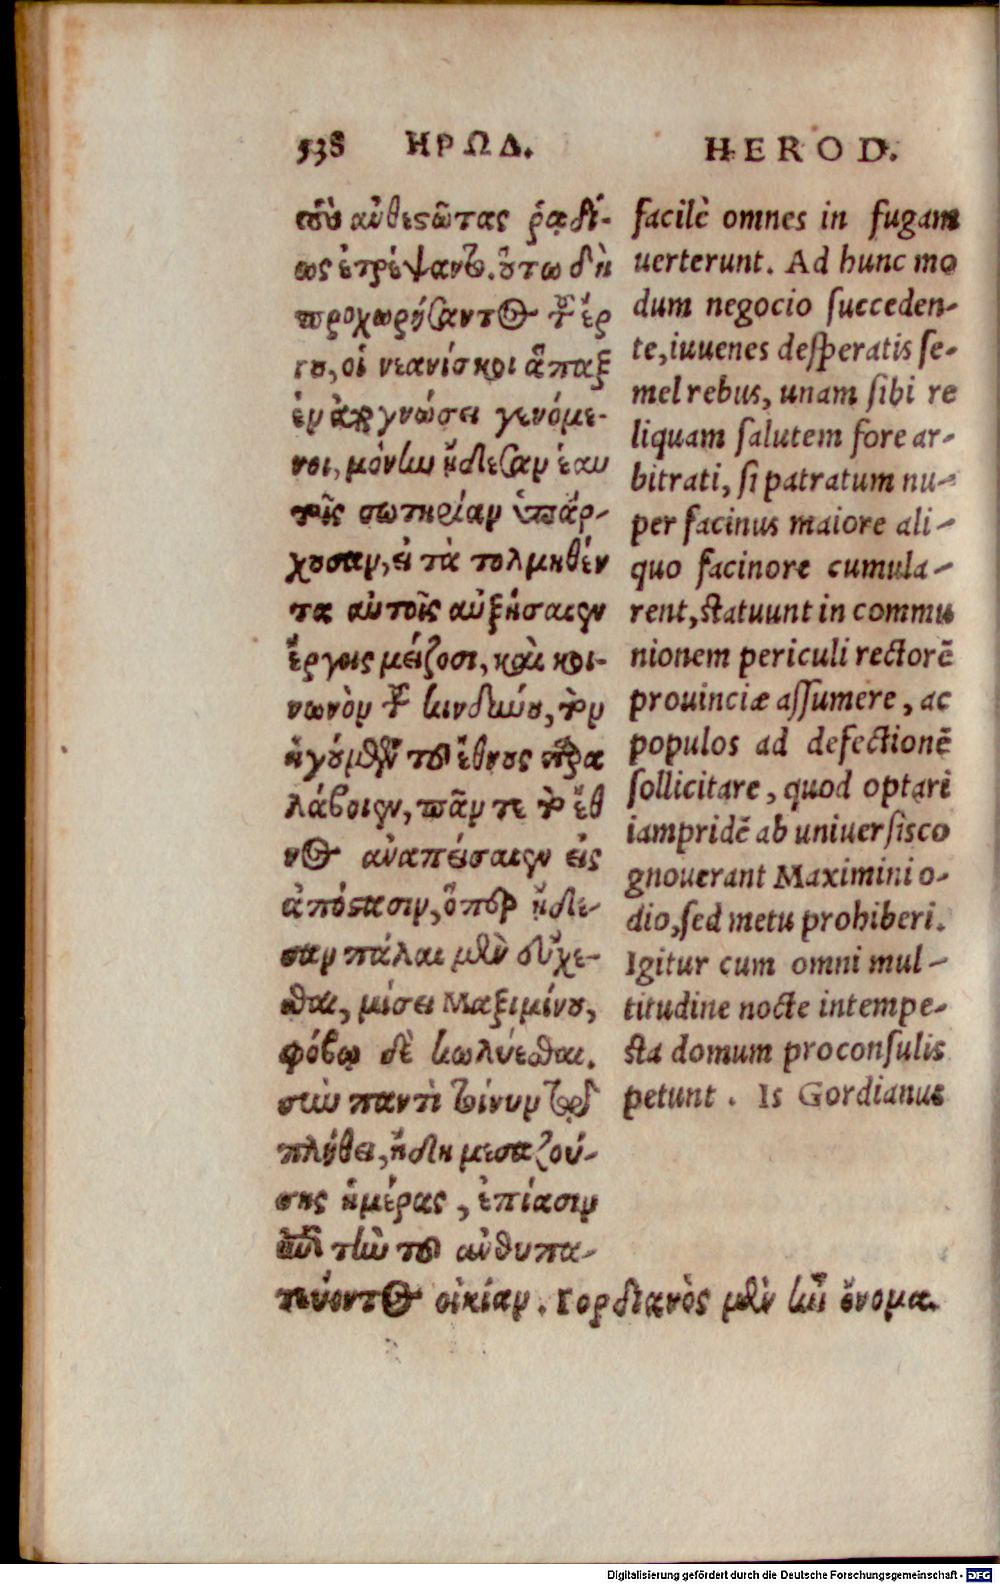 538 ΗΡΩΔ.
τοὺς ἀνθεστῶτας ῥαδί-
ως ἐτρέψαντο. οὕτω δὴ
προχωρήσαντος τοῦ ἔρ
γου, οἱ νεανίσκοι ἅπαξ
ἐν ἀπογνώσει γενόμε-
νοι, μόνην ᾔδεσαν ἑαυ
τοῖς σωτηρίαν ὑπάρ-
χουσαν, εἰ τὰ τολμηθέν
τα αὐτοῖς αὐξήσαιεν
ἔργοις μείζοσι, καὶ κοι-
νωνὸν τοῦ κινδύνου, τὸν
ἡγούμενον τοῦ ἔθνους παρα
λάβοιεν, πᾶν τε τὸ ἔθ
νος ἀναπείσαιεν εἰς
ἀπόστασιν, ὅπερ ᾔδε-
σαν πάλαι μὲν εὔχε-
σθαι, μίσει Μαξιμίνου,
φόβῳ δὲ κωλύεσθαι.
σὺν παντὶ τοίνυν τῷ
πλήθει, ἤδη μεσαζού-
σης ἡμέρας, ἐπίασιν
ἐπὶ τὴν τοῦ ἀνθυπα-
τεύοντος οἰκίαν. Γορδιανὸς μὲν ἦν ὄνομα.
HEROD.
facilè omnes in fugam
uerterunt. Ad hunc mo
dum negocio succeden-
te, iuuenes desperatis se-
mel rebus, unam sibi re
liquam salutem fore ar-
bitrati, si patratum nu-
per facinus maiore ali-
quo facinore cumula-
rent, statuunt in commu
nionem periculi rectorē
prouinciæ assumere, ac
populos ad defectionē
sollicitare, quod optari
iampridē ab uniuersis co
gnouerant Maximini o-
dio, sed metu prohiberi.
Igitur cum omni mul-
titudine nocte intempe-
sta domum proconsulis
petunt. Is Gordianus
Digitalisierung gefördert durch die Deutsche Forschungsgemeinschaft - DFG